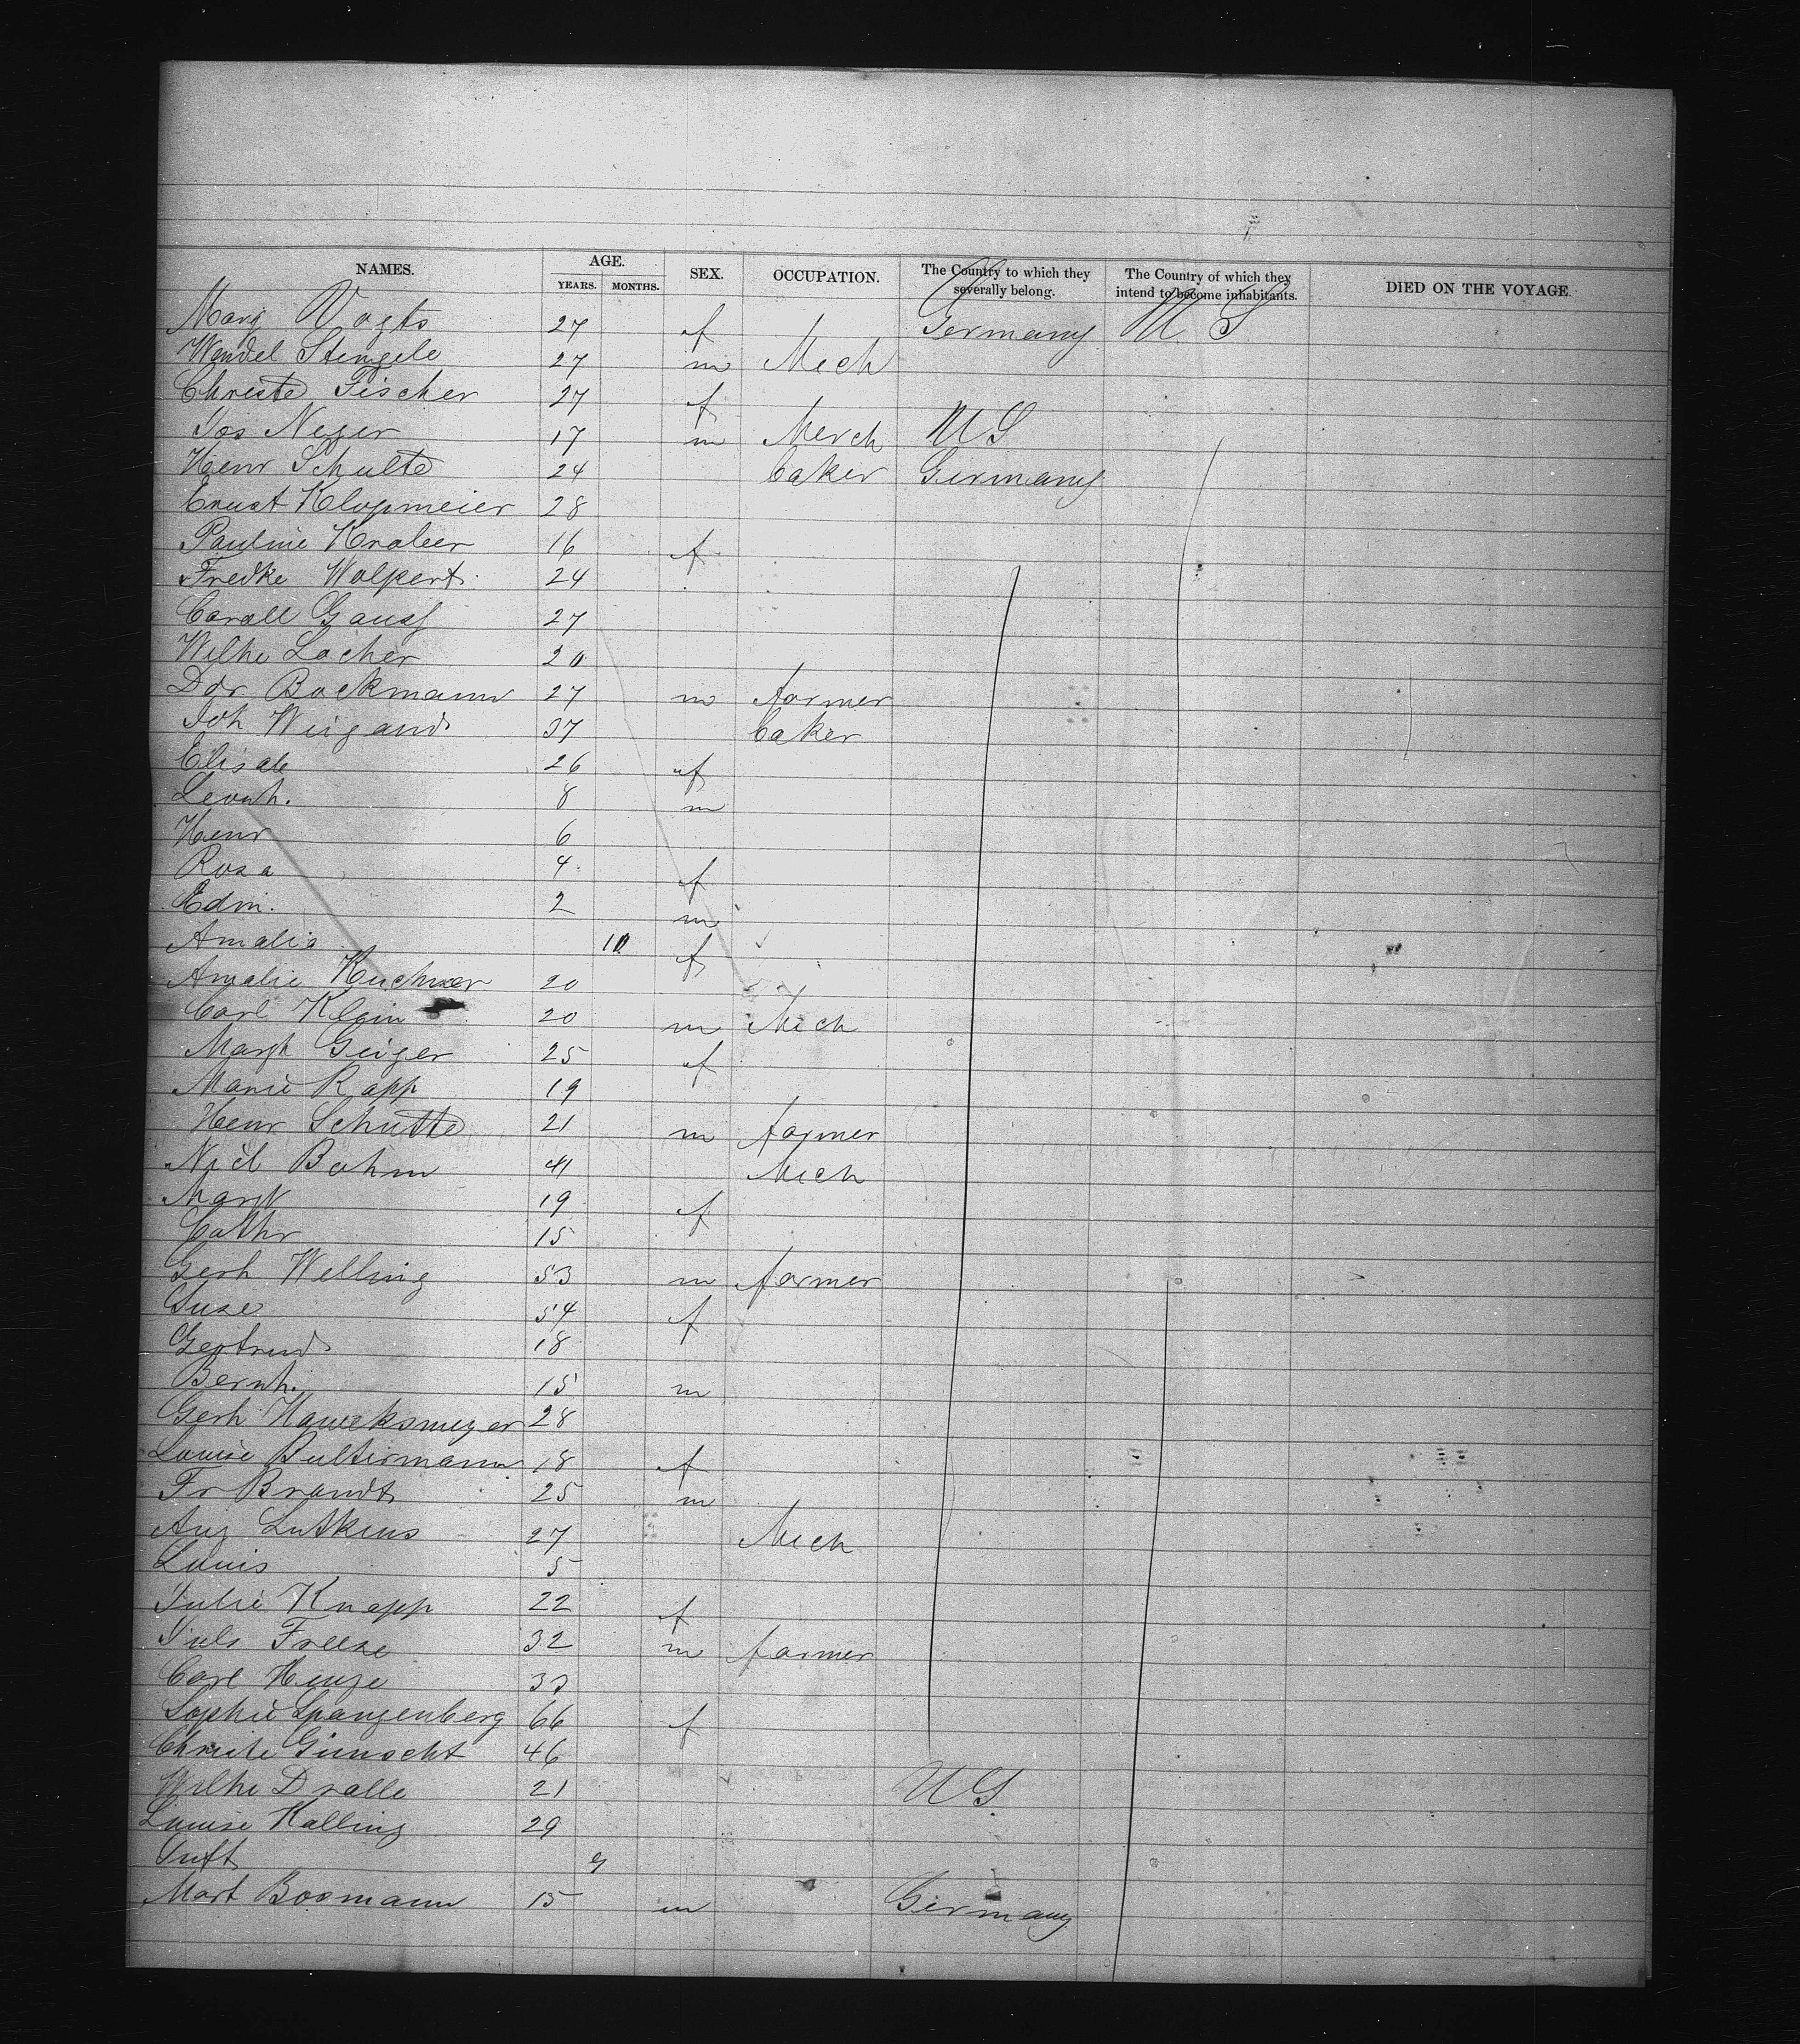 NAMES. AGE. YEARS. MONTHS. SEX. OCCUPATION. The Country to which they severally belong. The Country of which they intend to become inhabitants. DIED ON THE VOYAGE
Marg Vogts 27 f Germany U S
Wendel Stengele 27 m Mech
Christe Fischer 27 f
Jos Neger 17 m Merch U S
Henr Schulte 24 baker Germany
Ernst Klopmeier 28
Pauline 16 f
Fredke Wolpert 24
Gauss 27
Wilhe Locher 20
Bockmann 27 m farmer
Joh Weigand 37 baker
Elisab 26 f
Leonh. 8 m
Henr 6
Rosa 4
f
Edm. 2 m
Amalia 10 f
Amalie 20
Carl Klein 20 m Mech
Margh Geiger 25 f
Marie Rapp 19
Henr Schutte 21 m farmer
Bohm 41 Mech
Margt 19 f
Cathr 15
Gerh Welling 53 m farmer
Suse 54 f
Gertrud 18
Bernh. 15 m
Gerh 28
Louise Bultermann 18 f
Fr Brandt 25 m
Aug Lutkens 27 Mech
Louis 5
Julie Knapp 22 f
Juls Freese 32 m farmer
Carl Henze
Sophie Spangenberg 66 f
46
Wilhe Dralle 21 U S
Louise Kalling 29
Mart Bosmann 15 m Germany